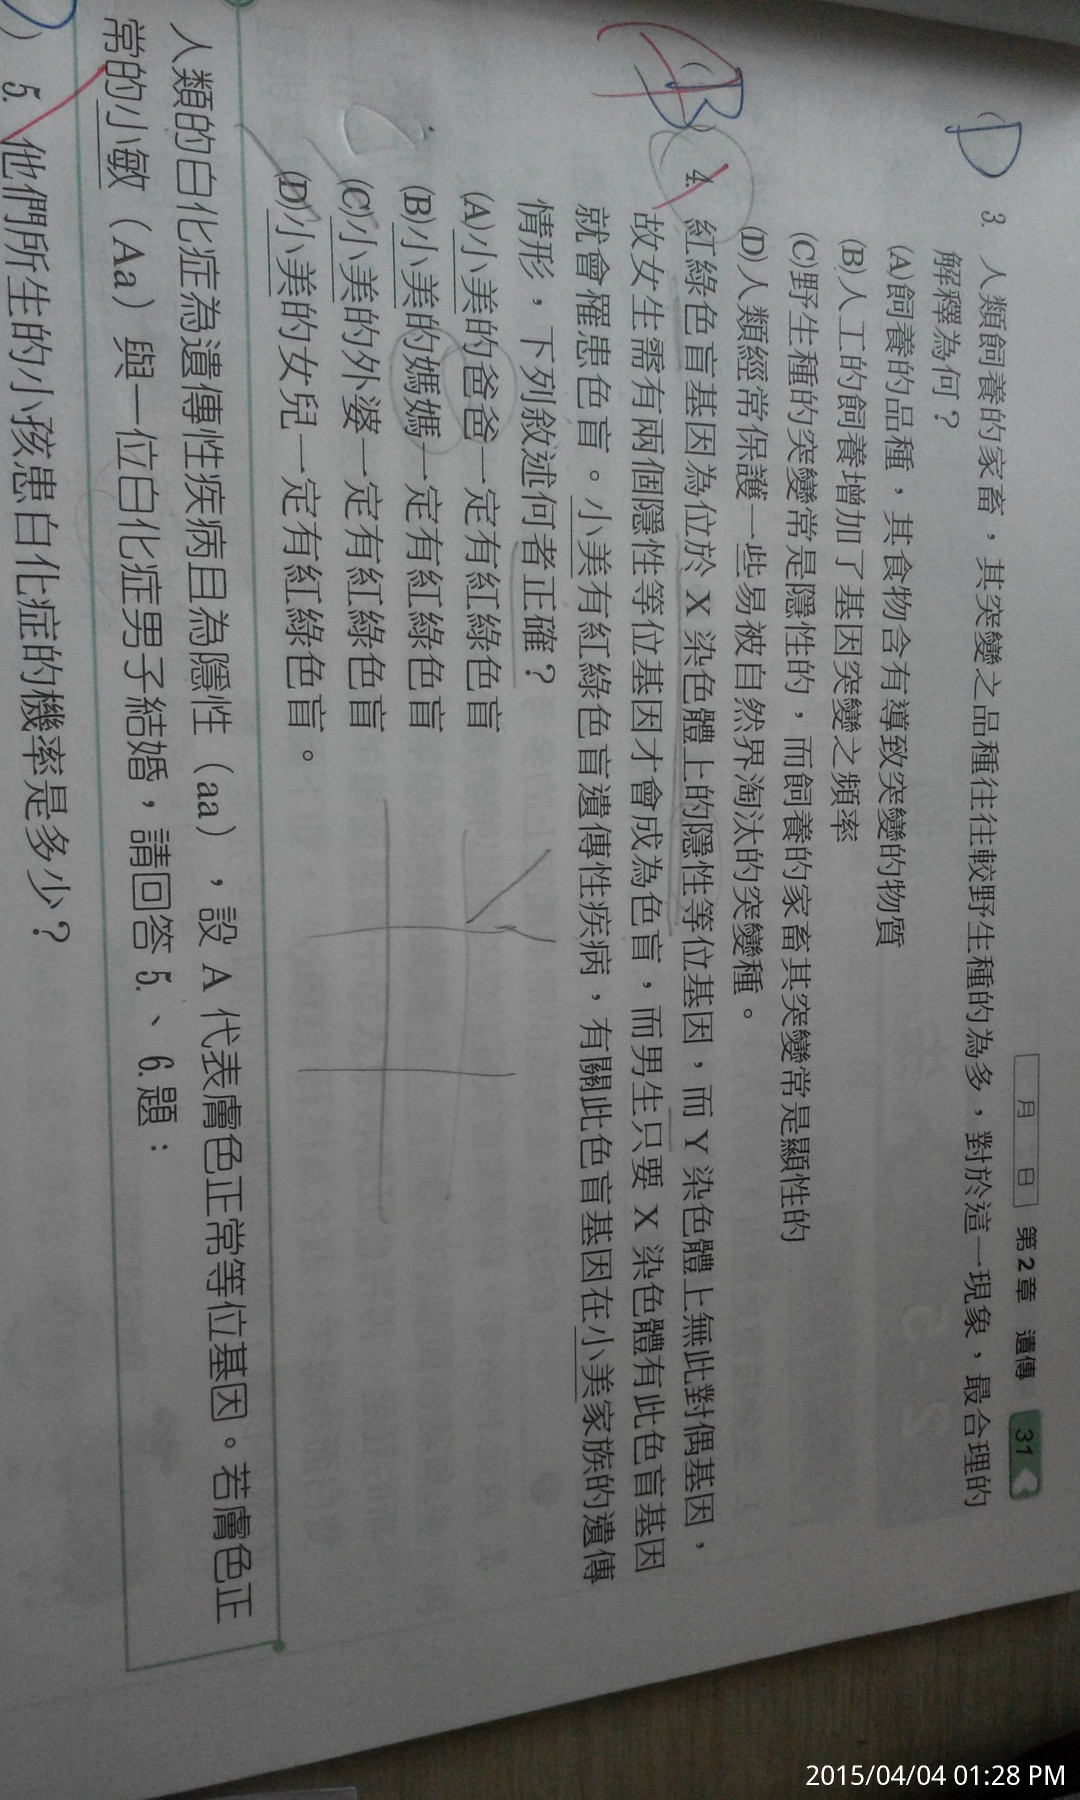 月 日 第2章 遺傳 31
(D) 3. 人類飼養的家畜，其突變之品種往往較野生種的為多，對於這一現象，最合理的
解釋為何？
(A)飼養的品種，其食物含有導致突變的物質
(B)人工的飼養增加了基因突變之頻率
(C)野生種的突變常是隱性的，而飼養的家畜其突變常是顯性的
(D)人類經常保護一些易被自然界淘汰的突變種。
(B) A 4. 紅綠色盲基因為位於 X 染色體上的隱性等位基因，而 Y 染色體上無此對偶基因，
故女生需有兩個隱性等位基因才會成為色盲，而男生只要 X 染色體有此色盲基因
就會罹患色盲。小美有紅綠色盲遺傳性疾病，有關此色盲基因在小美家族的遺傳
情形，下列敘述何者正確？
(A)小美的爸爸一定有紅綠色盲
(B)小美的媽媽一定有紅綠色盲
(C)小美的外婆一定有紅綠色盲
(D)小美的女兒一定有紅綠色盲。
人類的白化症為遺傳性疾病且為隱性（aa），設 A 代表膚色正常等位基因。若膚色正
常的小敏（Aa）與一位白化症男子結婚，請回答 5.、6.題：
) 5. 他們所生的小孩患白化症的機率是多少？
2015/04/04 01:28 PM